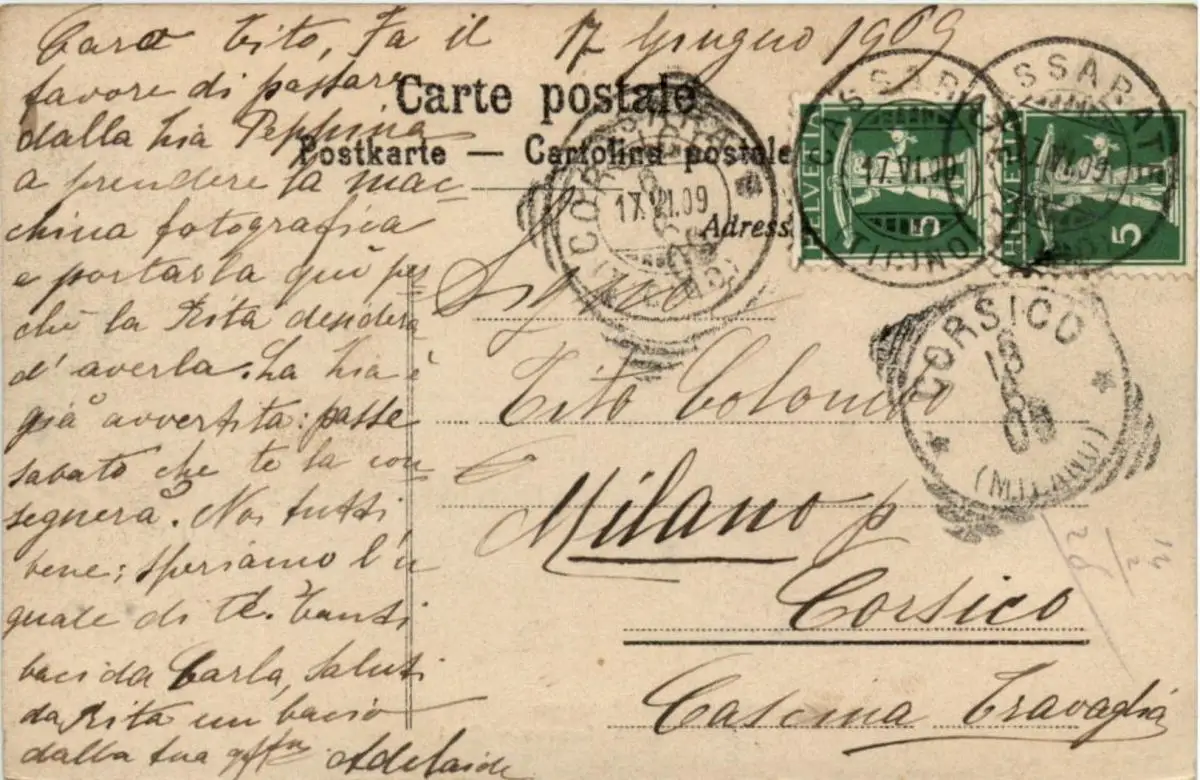 Caro Tito, Fa il 17 Giugno 1909
favore di passare
dalla zia Peppina
a prendere la mac-
china fotografica
e portarla quì per-
chè la Rita desidera
d'averla. La zia è
già avvertita: passe
sabato che te la con-
segnerà. Noi tutti
bene; speriamo l'u
guale di te. Tanti
baci da Carla, saluti
da Rita un bacio
dalla tua Adelaide
Carte postale
Postkarte — Cartolina postale
Adress.
HELVETIA
5
HELVETIA
5
CASSARATE
17.VI.09
(TICINO)
CASSARATE
17.VI.09
(TICINO)
17.VI.09
Signor
Tito Colombo
Milano p
Corsico
Cascina Travaglia
CORSICO
18
6
09
(MILANO)